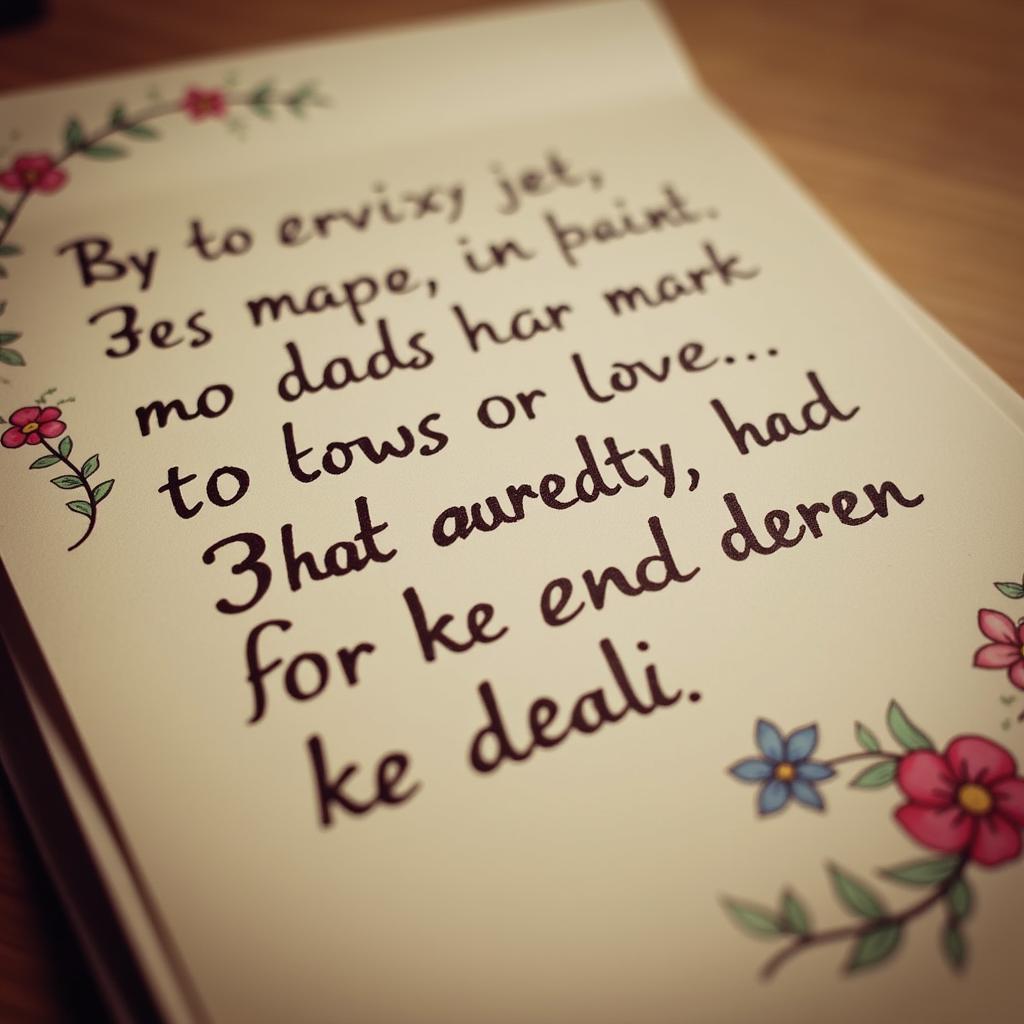 By to ervixy jet,
3es mape, in paint.
mo dads har mark
to tows or love...
3hat auredty, had
for ke end deren
ke deali.